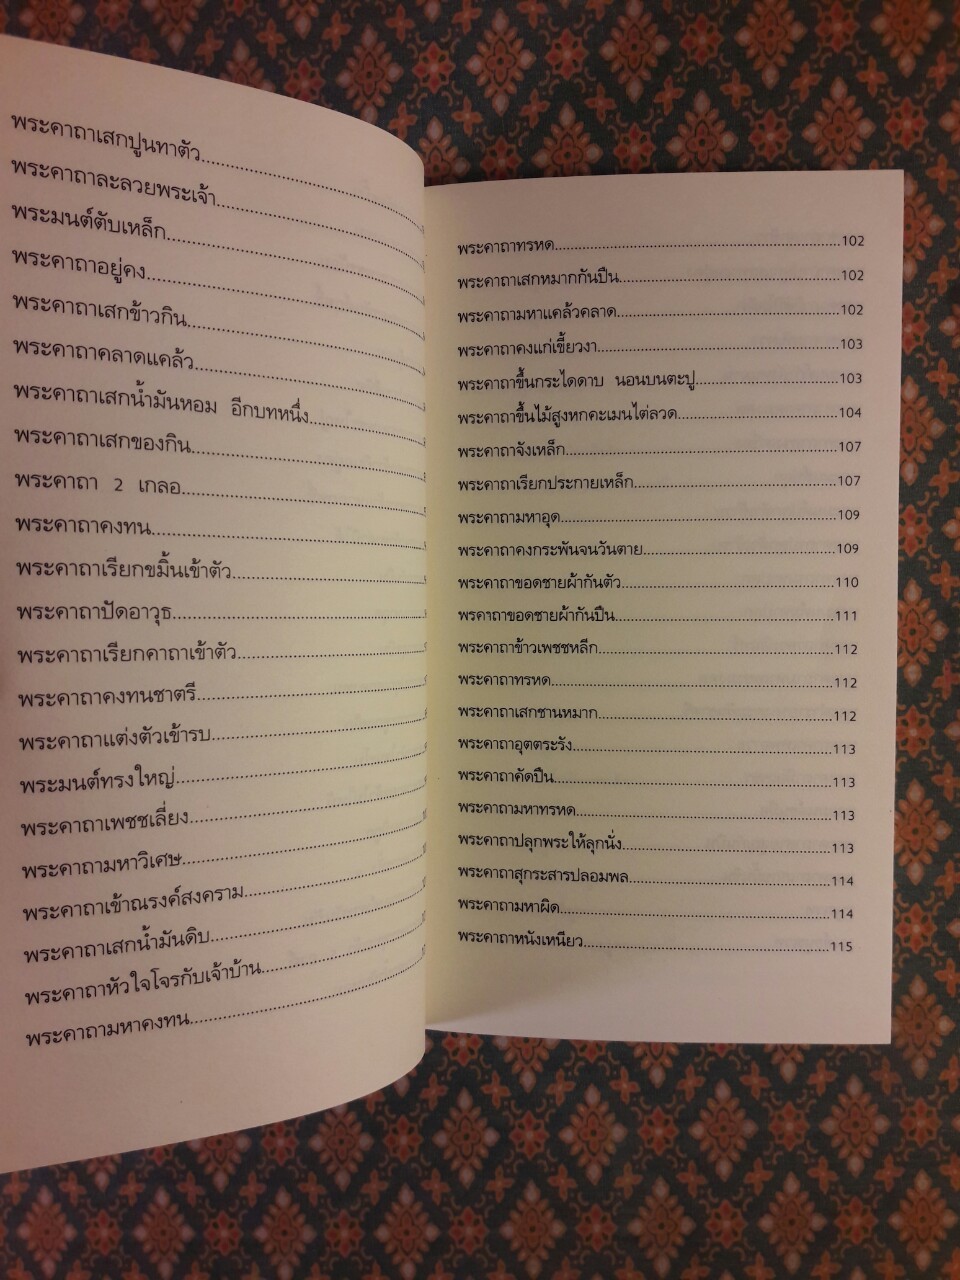 พระคาถาเสกปูนทาตัว
พระคาถาละลวยพระเจ้า
พระมนต์ตับเหล็ก
พระคาถาอยู่คง
พระคาถาเสกข้าวกิน
พระคาถาคลาดแคล้ว
พระคาถาเสกน้ำมันหอม อีกบทหนึ่ง
พระคาถาเสกของกิน
พระคาถา 2 เกลอ
พระคาถาคงทน
พระคาถาเรียกขมิ้นเข้าตัว
พระคาถาปัดอาวุธ
พระคาถาเรียกคาถาเข้าตัว
พระคาถาคงทนชาตรี
พระคาถาแต่งตัวเข้ารบ
พระมนต์ทรงใหญ่
พระคาถาเพชชเลี่ยง
พระคาถามหาวิเศษ
พระคาถาเข้าณรงค์สงคราม
พระคาถาเสกน้ำมันดิบ
พระคาถาหัวใจโจรกับเจ้าบ้าน
พระคาถามหาคงทน
พระคาถาทรหด 102
พระคาถาเสกหมากกันปืน 102
พระคาถามหาแคล้วคลาด 102
พระคาถาคงแก่เขี้ยวงา 103
พระคาถาขึ้นกระไดดาบ นอนบนตะปู 103
พระคาถาขึ้นไม้สูงหกคะเมนไต่ลวด 104
พระคาถาจังเหล็ก 107
พระคาถาเรียกประกายเหล็ก 107
พระคาถามหาอุด 109
พระคาถาคงกระพันจนวันตาย 109
พระคาถาขอดชายผ้ากันตัว 110
พรคาถาขอดชายผ้ากันปืน 111
พระคาถาข้าวเพชชหลีก 112
พระคาถาทรหด 112
พระคาถาเสกชานหมาก 112
พระคาถาอุตตระรัง 113
พระคาถาคัดปืน 113
พระคาถามหาทรหด 113
พระคาถาปลุกพระให้ลุกนั่ง 113
พระคาถาสุกระสารปลอมพล 114
พระคาถามหาผิด 114
พระคาถาหนังเหนียว 115